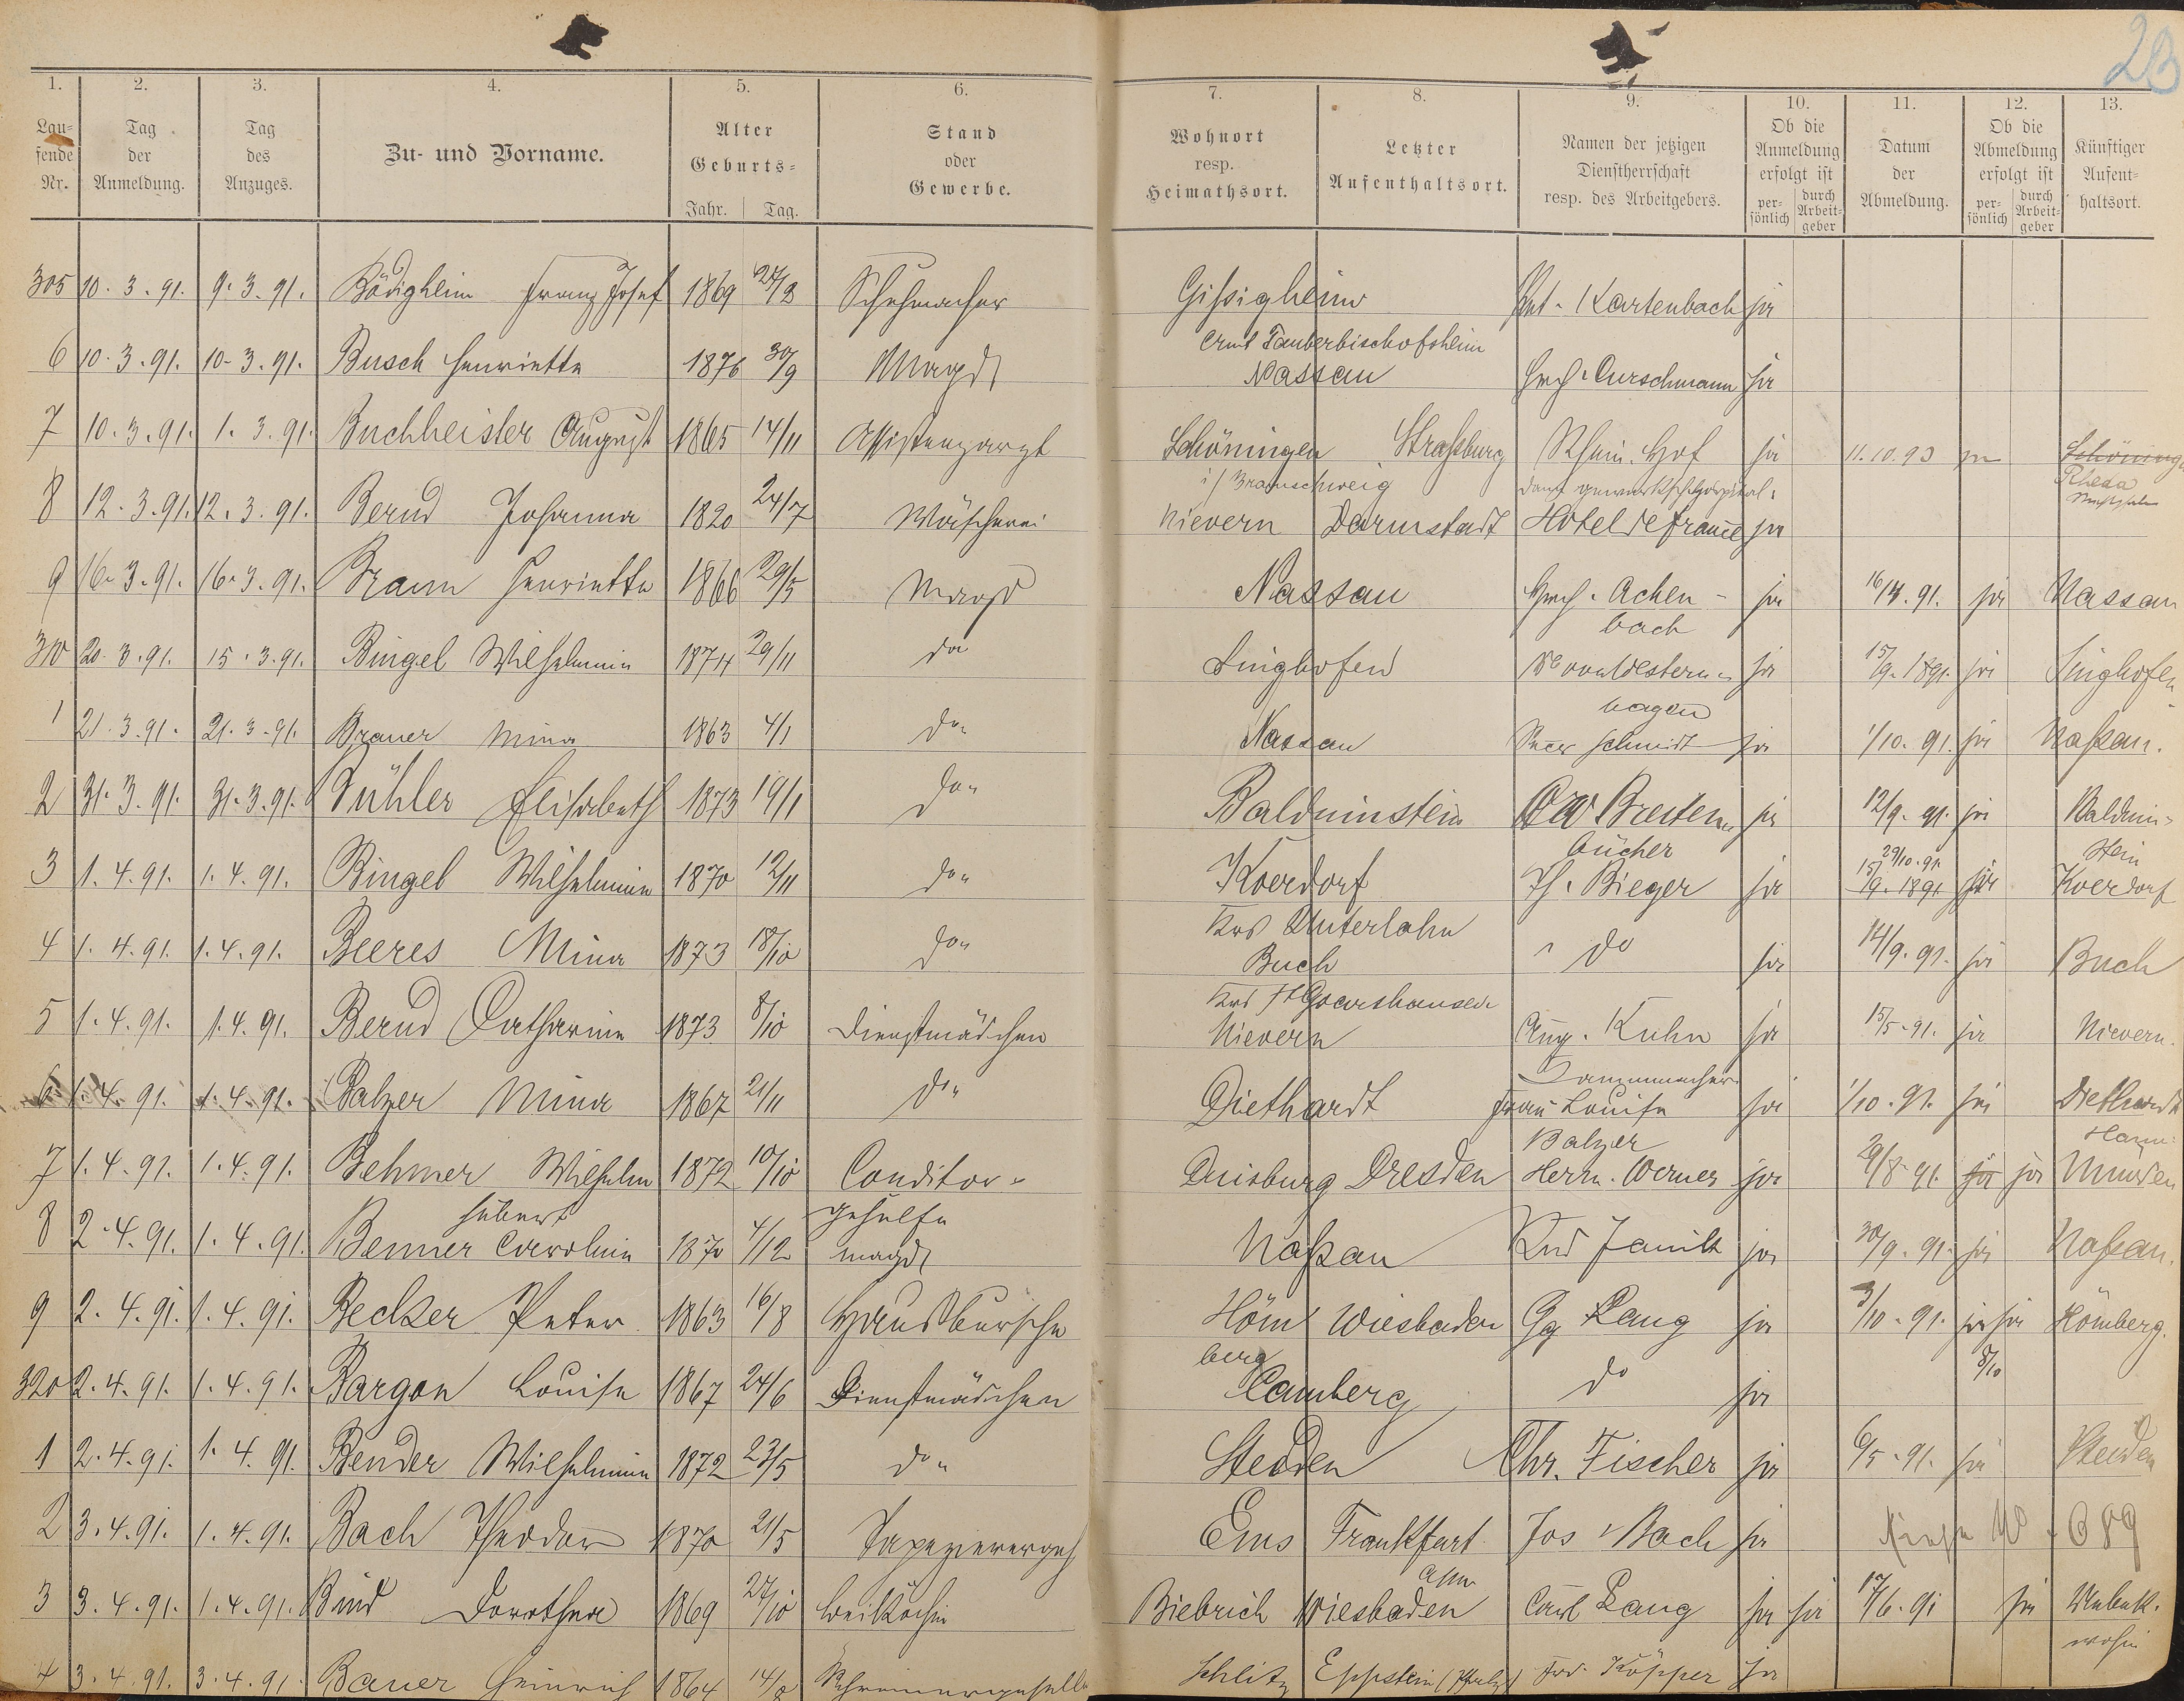 23
1. 2. 3. 4. 5. 6. 7. 8. 9. 10. 11. 12. 13.
Lau-
fende
Nr.
Tag
der
Anmeldung.
Tag
des
Anzuges.
Zu- und Vorname.
Alter
Geburts-
Jahr. Tag.
Stand
oder
Gewerbe.
Wohnort
resp.
Heimathsort.
Letzter
Aufenthaltsort.
Namen der jetzigen
Dienstherrschaft
resp. des Arbeitgebers.
Ob die
Anmeldung
erfolgt ist
per-
sönlich
durch
Arbeit-
geber
Datum
der
Abmeldung.
Ob die
Abmeldung
erfolgt ist
per-
sönlich
durch
Arbeit-
geber
Künftiger
Aufent-
haltsort.
305 10.3.91. 9.3.91. Bödigheim Franz Josef 1869 Schuhmacher Gissigheim Kartenbach ja
Amt Tauberbischofsheim
6 10.3.91. 10.3.91. Busch Henriette 1876 30/9 Magd Nassau Curschmann ja
7 10.3.91. 1.3.91. Buchheister August 1865 14/11 Assistenzarzt Schöningen Straßburg Rhein. Hof ja 11.10.93
i/Braunschweig Rheda
8 12.3.91. 12.3.91. Bernd Johanna 1820 24/7 Wäscherei Nievern Darmstadt Hotel de france ja
9 16.3.91. 16.3.91. Braun Henriette 1866 29/5 Magd Nassau Achen- ja 91. ja Nassau
bach
310 20.3.91. 15.3.91. Bingel Wilhelmine 1874 29/11 do Singhofen ja 15/9.1891. ja Singhofen
hagen
1 21.3.91. 21.3.91. Brauer Mina 1863 4/1 do" Nassau Schmidt ja 1/10.91. ja Naßau.
2 31.3.91. 31.3.91. Bühler Elisabeth 1873 19/1 do" Balduinstein Breiten ja 12/9.91. ja Balduin-
bücher stein
29/10.91.
3 1.4.91. 1.4.91. Bingel Wilhelmine 1870 12/11 do" Koerdorf Th. Bieger ja 15/9.1891 ja Koerdorf
Krs Unterlahn
4 1.4.91. 1.4.91. Beeres Mina 1873 18/10 do" Buch " do ja 14/9.91. ja Buch
Krs St Goarshausen
5 1.4.91. 1.4.91. Bernd Catharine 1873 8/10 Dienstmädchen Nievern Aug. Kuhn ja 15/5.91. ja Nievern.
6 1.4.91. 1.4.91. Balzer Mina 1867 21/11 do" Diethardt Frau Louise ja 1/10.91. ja Diethardt
Balzer Hann:
7 1.4.91. 1.4.91. Behmer Wilhelm 1872 10/10 Conditor- Duisburg Dresden Herm. Werner ja 29/8.91. ja ja Münden
Hubert gehülfe
8 2.4.91. 1.4.91. Benner Caroline 1870 4/12 Magd Naßau ja 30/9.91. ja Naßau.
9 2.4.91. 1.4.91. Becker Peter 1863 16/8 Hausbursche Höm Wiesbaden Gg Lang ja 3/10.91. ja ja Hömberg.
berg 8/10
320 2.4.91. 1.4.91. Bargon Louise 1867 24/6 Dienstmädchen Camberg do ja
1 2.4.91. 1.4.91. Bender Wilhelmine 1872 23/5 do" Steeden Chr. Fischer ja 6/5.91. ja Steeden
2 3.4.91. 1.4.91. Bach Theodor 1870 21/5 Tapezierergeh Ems Frankfurt Jos. Bach ja siehe No 689
a/m
3 3.4.91. 1.4.91. Bind Dorothea 1869 27/10 Beiköchin Biebrich Wiesbaden Carl Lang ja ja 17/6.91 ja Unbek.
wohin
4 3.4.91. 3.4.91. Bauer Heinrich 1864 14/8 Schreinergeselle Schlitz Eppstein (Pfalz) Köpper ja